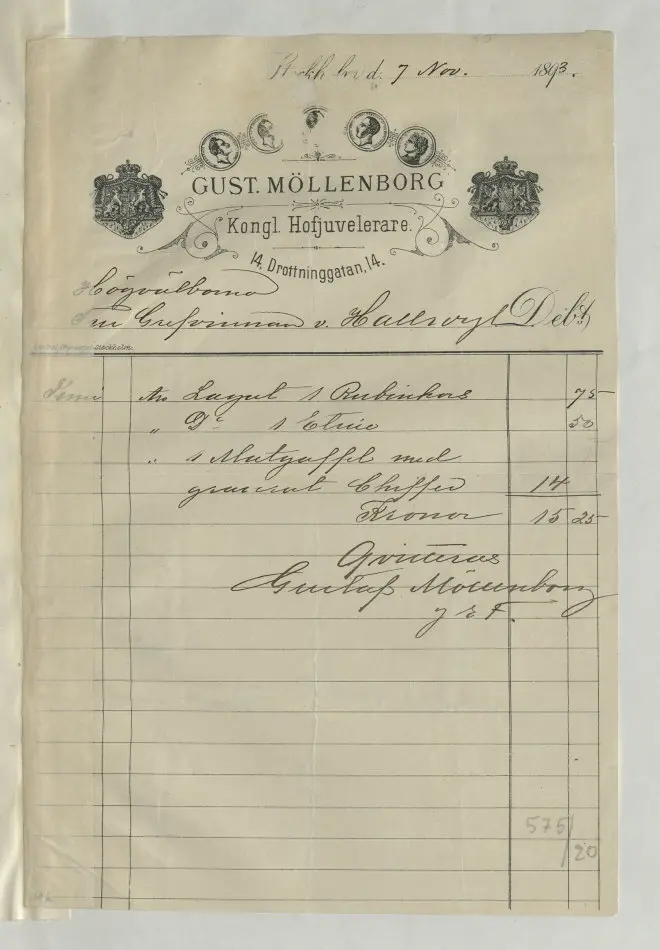 Stockholm d. 7 Nov. 1893.
GUST. MÖLLENBORG
Kongl. Hofjuvelerare.
14, Drottninggatan, 14.
Högvälborna
Fru Grefvinnan v. Hallwyl Debt
Stockholm.
Juni An Lagat 1 Rubinkors 75
" Do 1 Etuie 50
" 1 Matgaffel med
graverat Chiffer 14
Kronor 15 25
Qvitteras
Gustaf Möllenborg
575/
/20